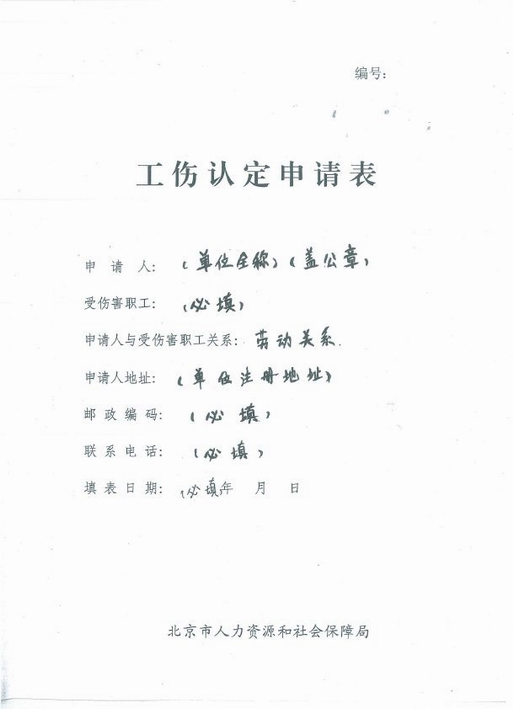 编号:
工伤认定申请表
申请人: (单位全称)(盖公章)
受伤害职工: (必填)
申请人与受伤害职工关系:劳动关系.
申请人地址: (单位注册地址)
邮政编码: (必填)
联系电话: (必填)
填表日期: (必填)年 月 日
北京市人力资源和社会保障局